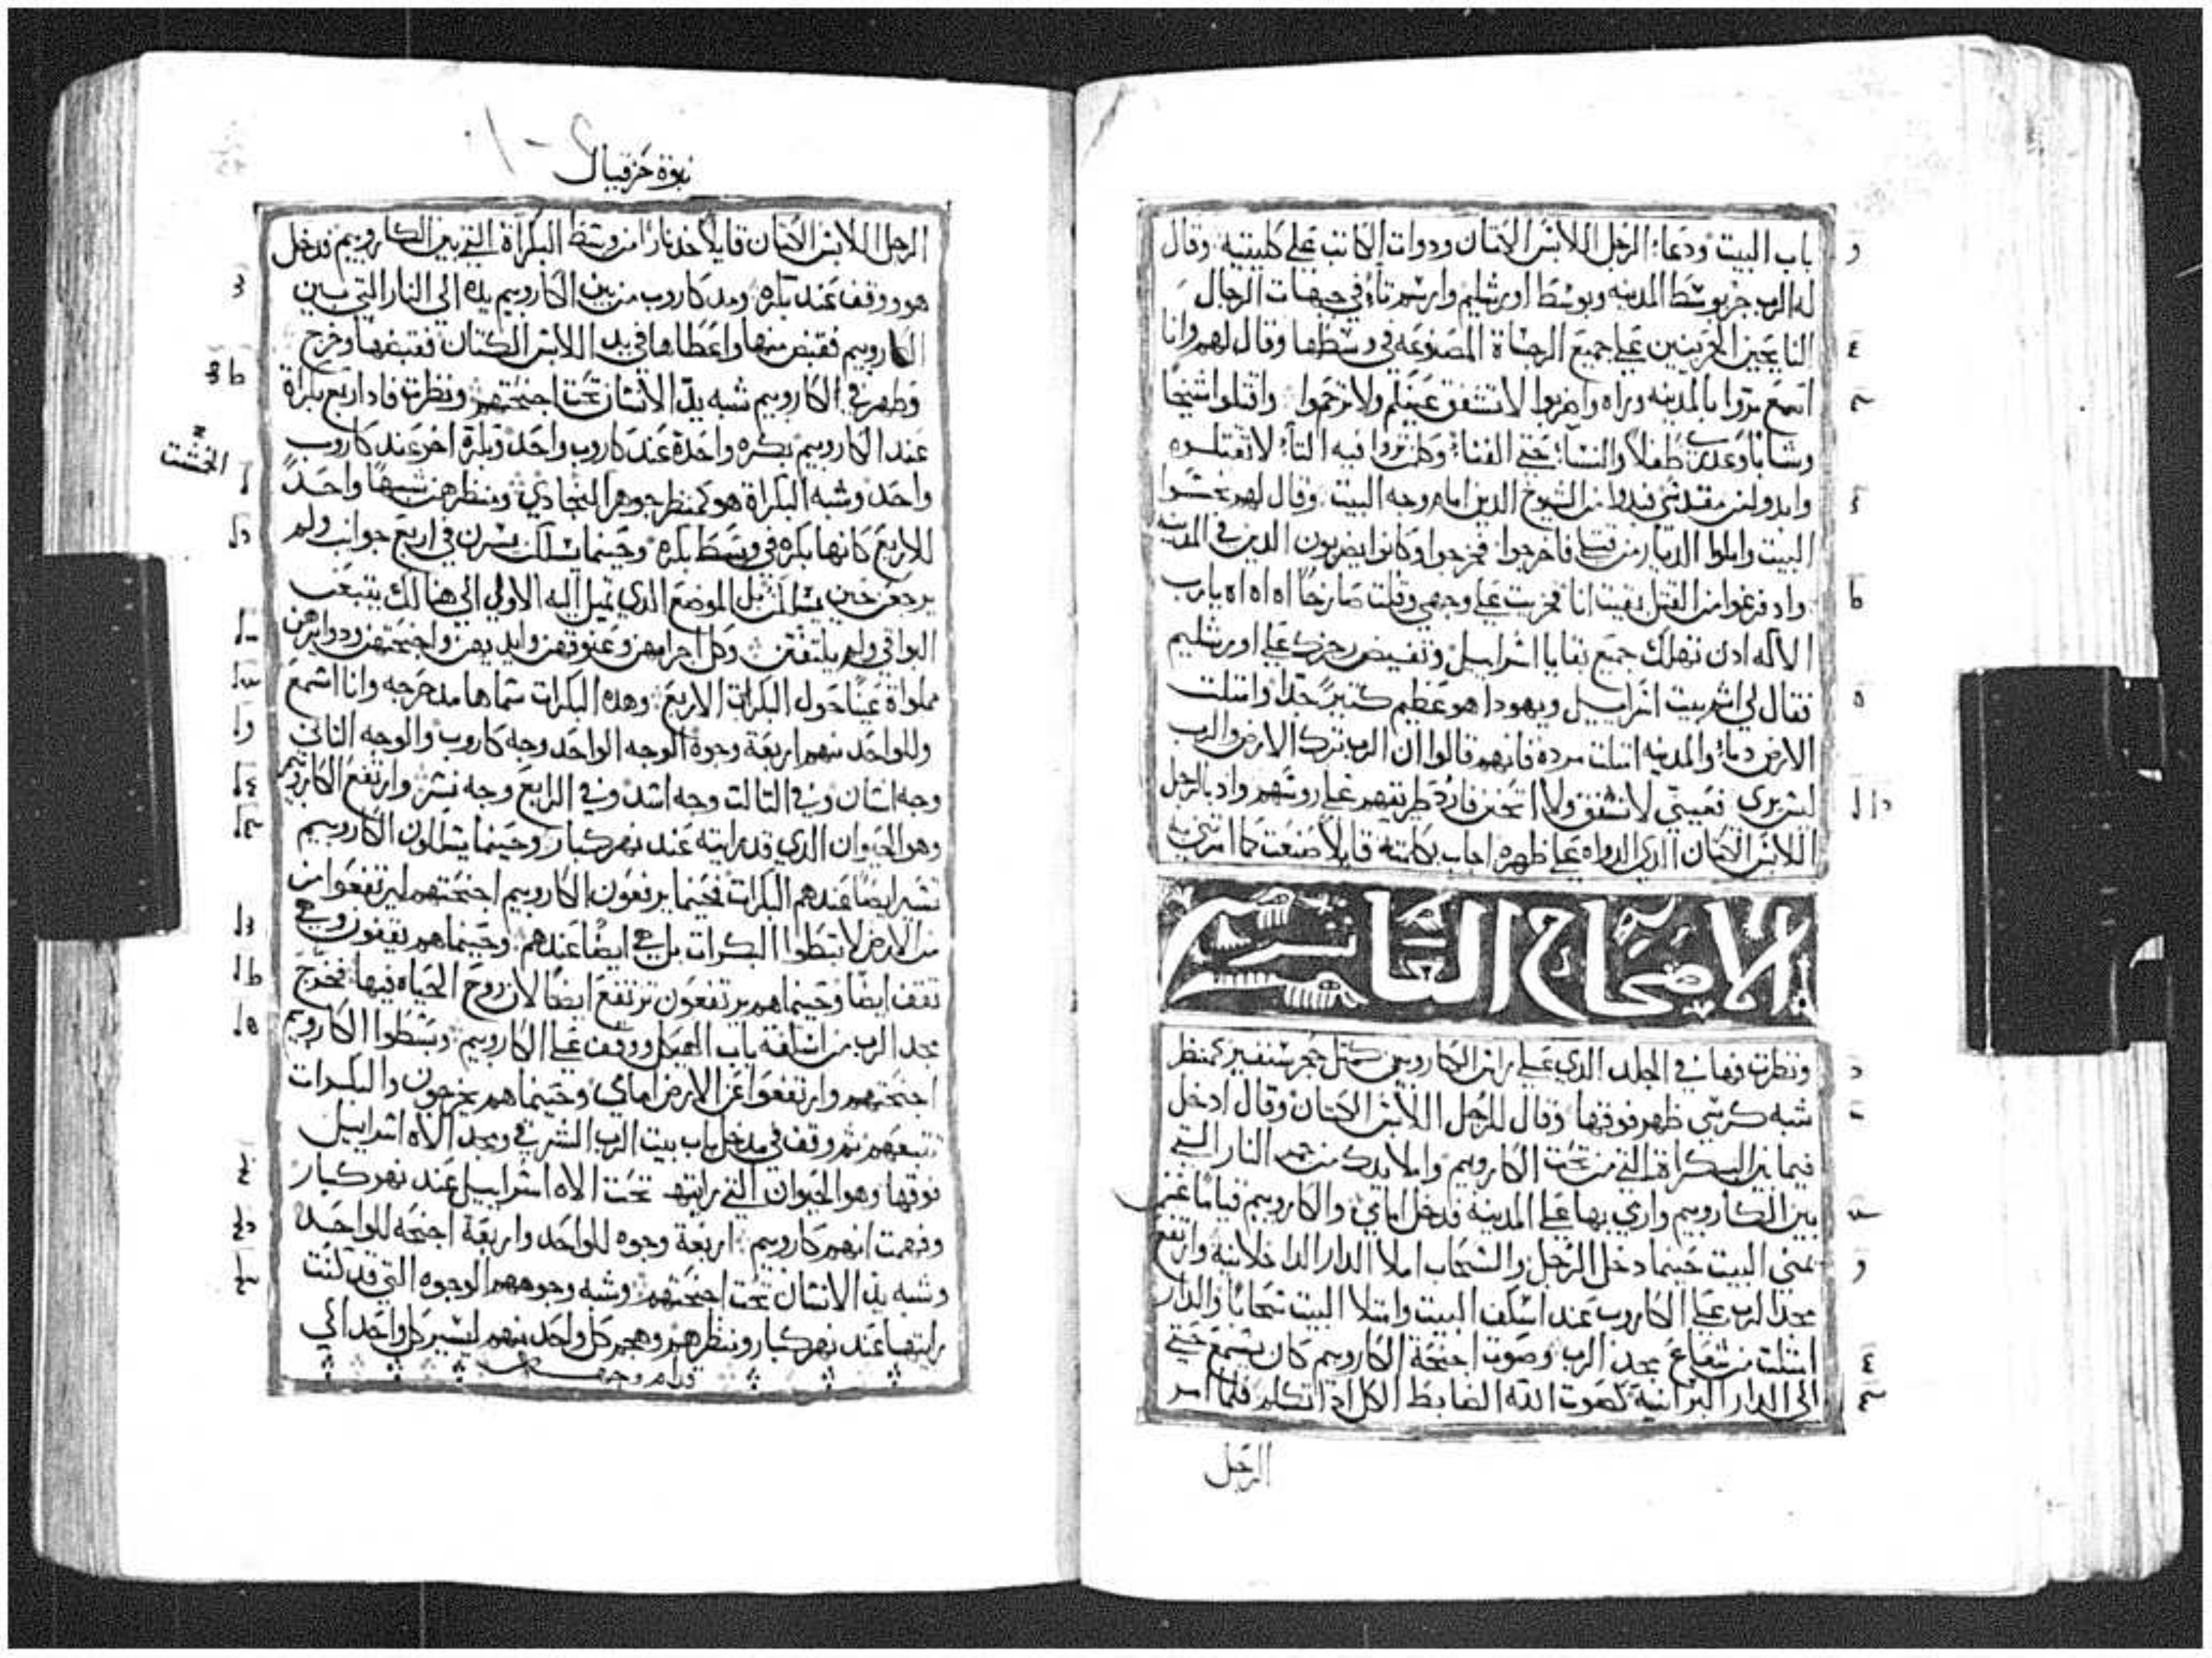 باب البيت ودعا الرجل اللابس الكتان ودوات الكاتب علي كليتيه وقال
له الرب جز بوسط المدينه وبوسط اورشليم وارسم تاء في جبهات الرجال
النايحين الحزينين علي جميع الرجساة المصنوعه في وسطها وقال لهم وانا
اسمع مروا بالمدينه وراه واضربوا لا تشفق عينكم ولا ترحموا واقتلوا شيخا
وشابا طفلا والنسا حتي الفنا فيه التاء لا تقتلوه
وابدوا من مقدسي فبدوا من الشيوخ الدين امام وجه البيت وقال لهم نجسوا
البيت واملوا الديار من قتلي فاخرجوا فخرجوا وكانوا يضربون الدين في المدينه
واد فرغوا من القتل بقيت انا فخريت علي وجهي وقلت صارخا اه اه اه يارب
الاله ادن تهلك جميع بقايا اسراييل وتفيض رجزك علي اورشليم
فقال لي اتم بيت اسراييل ويهودا هو عظيم كتير جدا وامتلت
الارض دماء والمدينه امتلت مرده فانهم قالوا ان الرب ترك الارض والرب
ليس يري فعيني لا تشفق ولا اتحنن فارد طريقهم علي روسهم واد بالرجل
اللابس الكتان الدي الدواه علي ظهره اجاب بكلمته قايلا صنعت كما امرتني
الاصحاح العاشر
ونظرت فها في الجلد الدي علي راس الكاروبيم كمتل حجر سنفير كمنظر
شبه كرسي ظهر فوقها وقال للرجل اللابس الكتان وقال ادخل
فيما بين البكراة التي من تحت الكاروبيم واملا يدك من جمر النار التي
بين الكاروبيم واري بها علي المدينه فدخل امامي والكاروبيم قياما عن
يمني البيت حينما دخل الرجل والسحاب املا الدار الداخلانيه وارتفع
مجد الرب علي الكاروب عند اسكف البيت وامتلا البيت سحابا والدار
امتلت من شعاع مجد الرب وصوت اجنحة الكاروبيم كان يسمع حتي
الي الدار البرانية كصوت الله الضابط الكل ادا تكلم فلما امر
الرجل
نبوة حزقيال
الرجل اللابس الكتان قايلا خد نارا من وسط البكراة التي بين الكاروبيم فدخل
هو ووقف عند بكره ومد كاروب من بين الكاروبيم يده الي النار التي بين
الكاروبيم فقبض منها واعطاها في يد اللابس الكتان فقبضها وخرج
وظهر في الكاروبيم شبه يد الانسان تحت اجنحتهم ونظرت فادا اربع بكراة
عند الكاروبيم بكره واحدة عند كاروب واحد وبكرة اخر عند كاروب
واحد وشبه البكراة هو كمنظر جوهر البنجادي ومنظرهن شبها واحدا
للاربع كانها بكره في وسط بكره وحينما يسلكن يسرن في اربع جوانب ولم
يرجعن حين يسلكن بل الموضع الدي تميل اليه الاولي الي هنالك يتبعن
البواقي ولم يلتفتن وكل اجرامهن وعنوقهن وايديهن واجنحتهن ودوايرهن
مملواة عينا حول البكرات الاربع وهده البكرات سماها مدحرجه وانا اسمع
وللواحد منهم اربعة وجوه الوجه الواحد وجه كاروب والوجه التاني
وجه انسان وفي التالت وجه اسد وفي الرابع وجه نسر وارتفع الكاروبيم
وهو الحيوان الدي قد رايته عند نهر كبار وحينما يسلكون الكاروبيم
تسير ايضا عندهم البكرات فحينما يرفعون الكاروبيم اجنحتهم ليرتفعوا من
من الارض لا تبطوا البكرات بل هي ايضا عندهم وحينما هم يقفون وهي
تقف ايضا وحينما هم يرتفعون ترتفع ايضا لان روح الحياه فيها فخرج
مجد الرب من اسكفة باب الهيكل ووقف علي الكاروبيم وبسطوا الكاروبيم
اجنحتهم وارتفعوا عن الارض امامي وحينما هم يخرجون والبكرات
تتبعهم تم وقف في مدخل باب بيت الرب الشرقي ومجد الاه اسراييل
فوقها وهو الحيوان التي رايتها تحت الاه اسراييل عند نهر كبار
وفهمت انهم كاروبيم اربعة وجوه للواحد واربعة اجنحه للواحد
وشبه يد الانسان تحت اجنحتهم وشبه وجوههم الوجوه التي قد كنت
رايتها عند نهر كبار ومنظرهم وهجم كل واحد منهم ليسير كل واحد الي
قدام وجهه